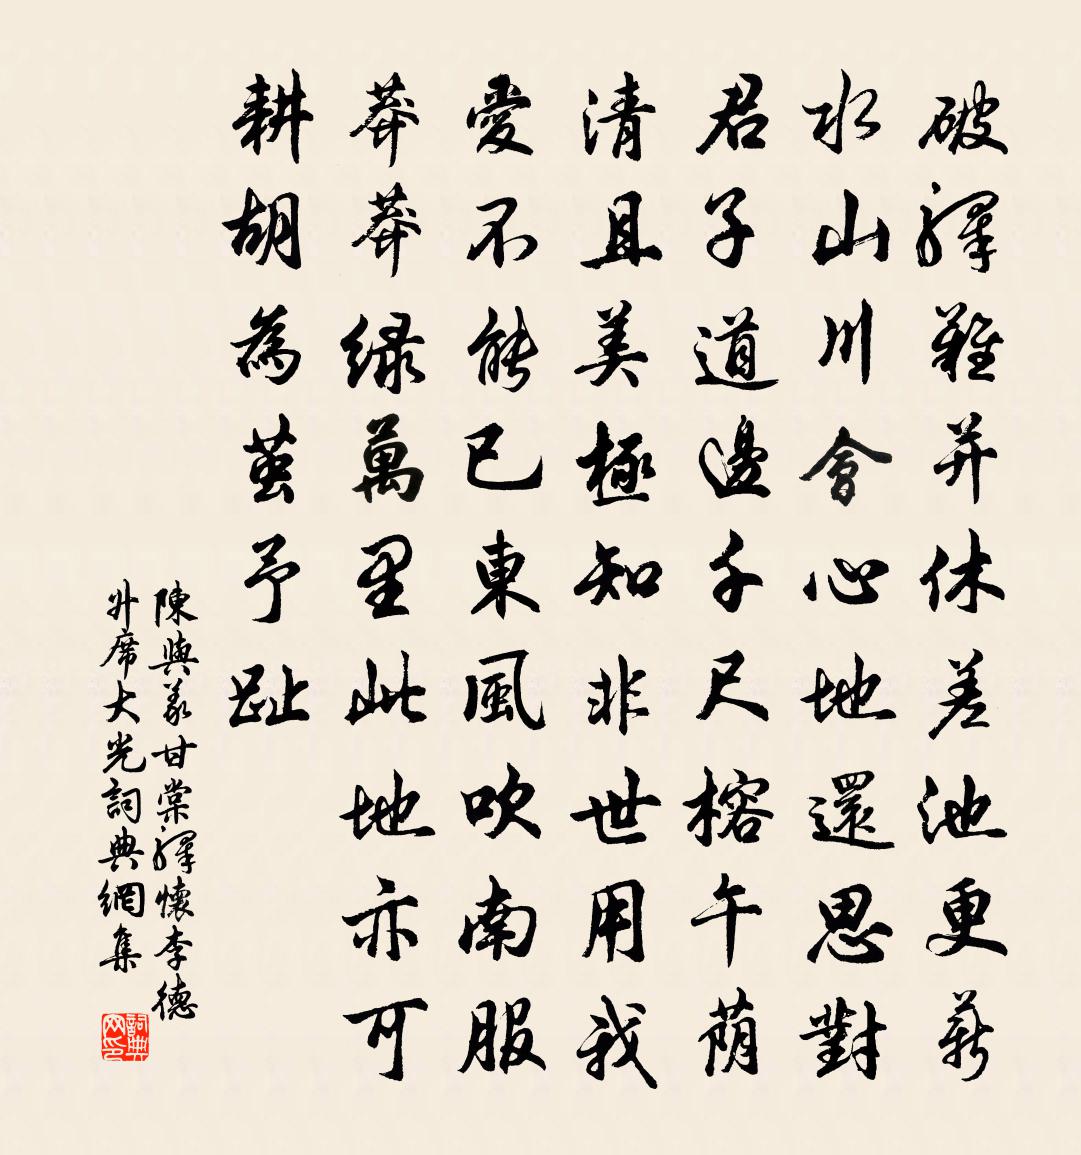 破驛難并休差池更薪
水山川會心地還思對
君子道邊千尺榕午蔭
清且美極知非世用我
愛不能已東風吹南服
莽莽綠萬里此地亦可
耕胡為茧予趾
陳與義甘棠驛懷李德
升席大光詞典網集
詞典
网印